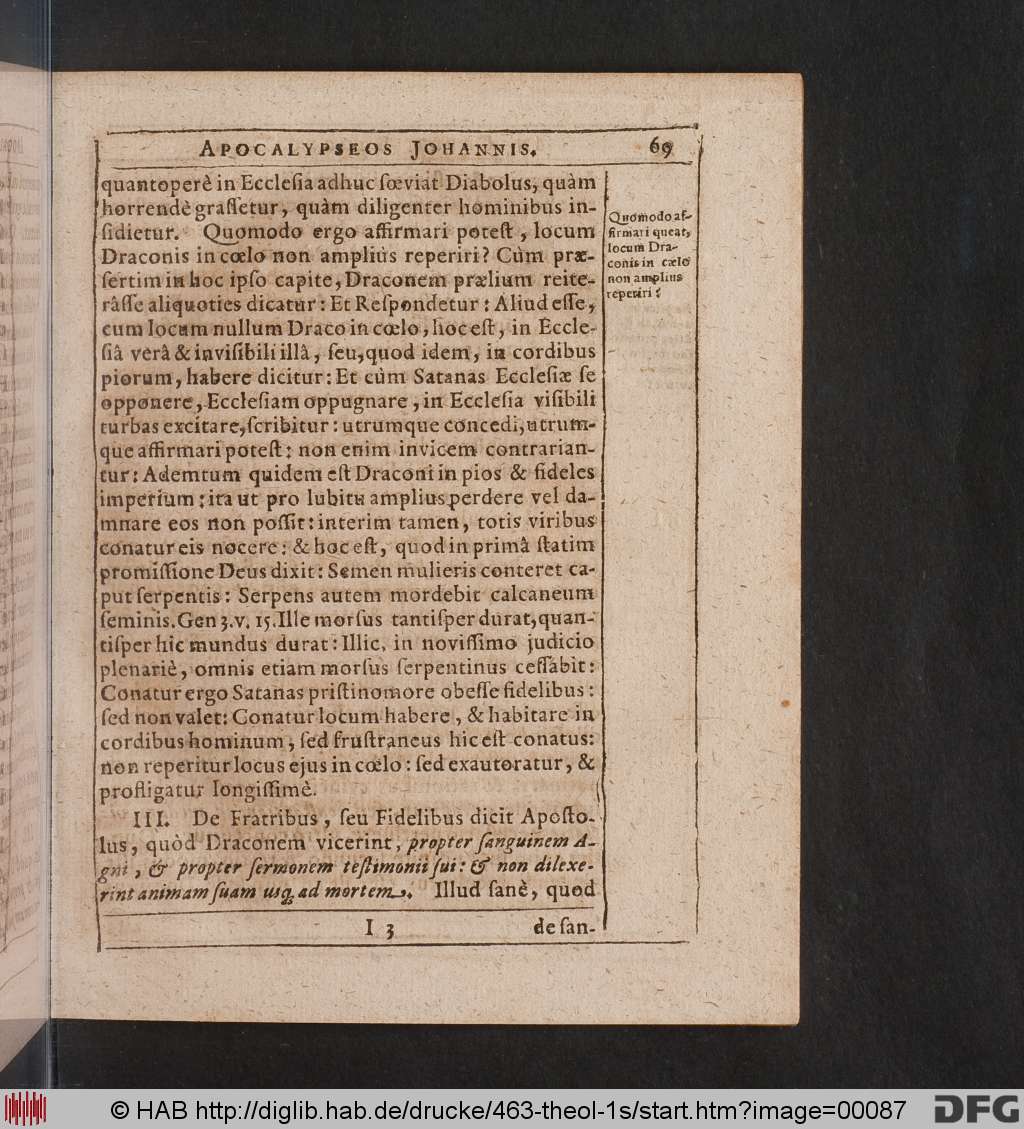 APOCALYPSEOS JOHANNIS. 69
quantoperè in Ecclesia adhuc sœviat Diabolus, quàm
horrendè grassetur, quàm diligenter hominibus in-
sidietur. Quomodo ergo affirmari potest, locum
Draconis in cœlo non amplius reperiri? Cùm præ-
sertim in hoc ipso capite, Draconem prælium reite-
râsse aliquoties dicatur: Et Respondetur: Aliud esse,
cum locum nullum Draco in cœlo, hoc est, in Eccle-
siâ verâ & invisibili illâ, seu, quod idem, in cordibus
piorum, habere dicitur: Et cùm Satanas Ecclesiæ se
opponere, Ecclesiam oppugnare, in Ecclesia visibili
turbas excitare, scribitur: utrumque concedi, utrum-
que affirmari potest: non enim invicem contrarian-
tur: Ademtum quidem est Draconi in pios & fideles
imperium; ita ut pro lubitu amplius perdere vel da-
mnare eos non possit: interim tamen, totis viribus
conatur eis nocere: & hoc est, quod in primâ statim
promissione Deus dixit: Semen mulieris conteret ca-
put serpentis: Serpens autem mordebit calcaneum
seminis. Gen 3. v. 15. Ille morsus tantisper durat, quan-
tisper hic mundus durat: Illic, in novissimo judicio
plenariè, omnis etiam morsus serpentinus cessabit:
Conatur ergo Satanas pristino more obesse fidelibus:
sed non valet: Conatur locum habere, & habitare in
cordibus hominum, sed frustraneus hic est conatus:
non reperitur locus ejus in cœlo: sed exautoratur, &
profligatur longissimè.
III. De Fratribus, seu Fidelibus dicit Aposto-
lus, quòd Draconem vicerint, propter sanguinem A-
gni, & propter sermonem testimonii sui: & non dilexe-
rint animam suam usq; ad mortem. Illud sanè, quod
I 3 de san-
Quomodo af-
firmari queat,
locum Dra-
conis in cœlo
non amplius
reperiri?
© HAB http://diglib.hab.de/drucke/463-theol-1s/start.htm?image=00087
DFG